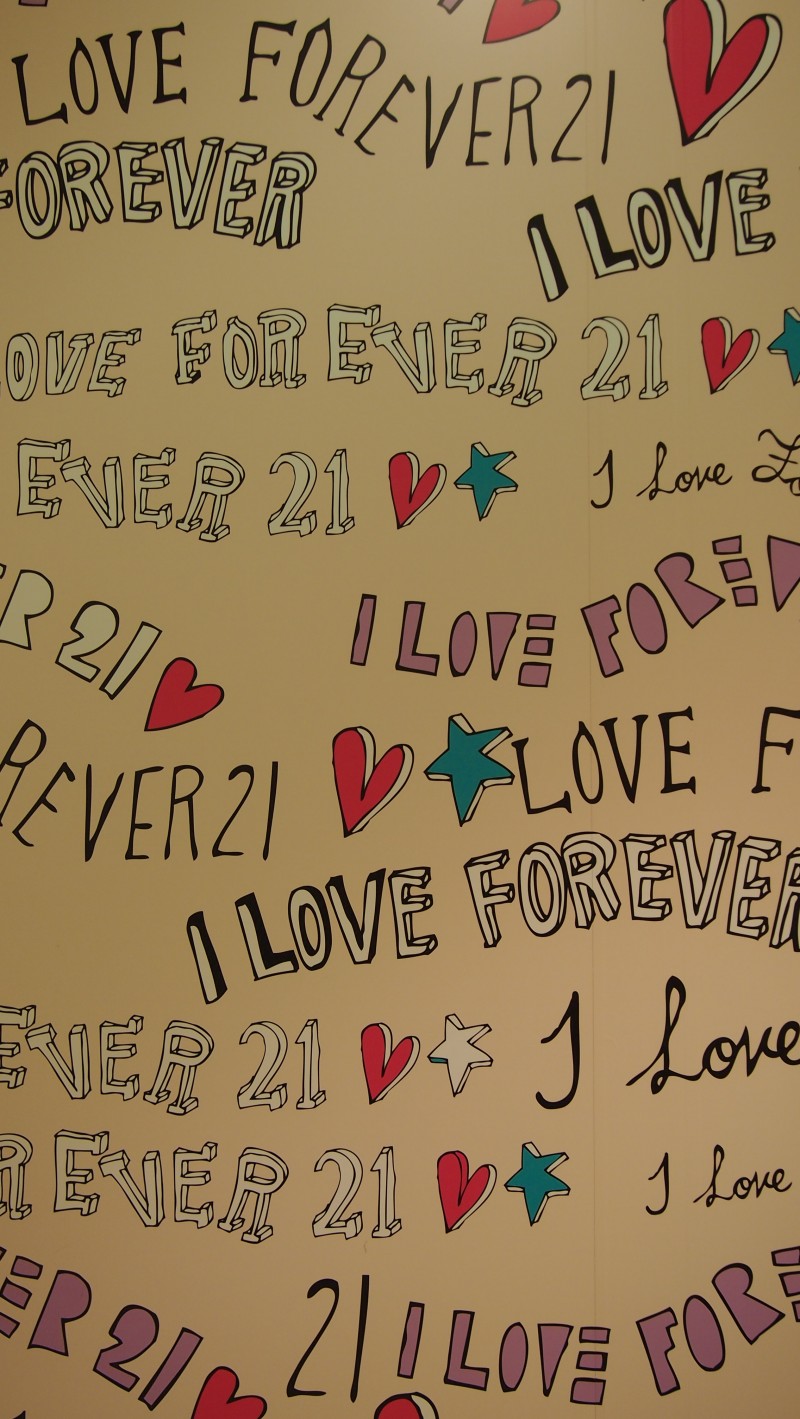 LOVE FOREVER 21
FOREVER
I LOVE
LOVE FOREVER 21
EVER 21
I Love
ER 21
I LOVE FOREV
REVER 21
LOVE F
I LOVE FOREVER
EVER 21
I Love
REVER 21
I Love
ER 21
21
I LOVE FORE